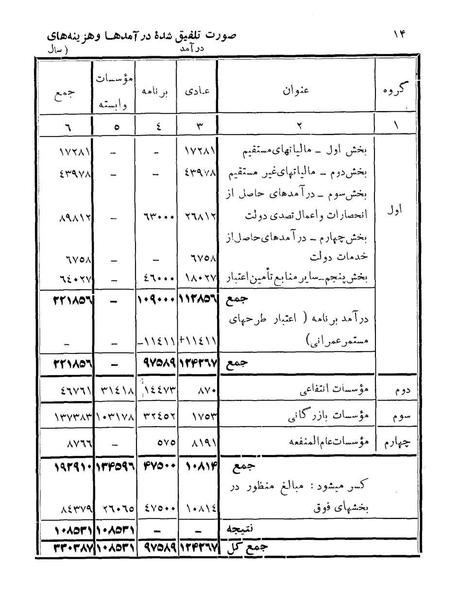 ۱۴ صورت تلفیق شدهٔ درآمدها وهزینه‌های
درآمد (سال
گروه عنوان عادی برنامه مؤسسات وابسته جمع
۱ ۲ ۳ ٤ ۵ ۶
اول بخش اول ـ مالیاتهای مستقیم ۱۷۲۸۱ – – ۱۷۲۸۱
بخش دوم ـ مالیاتهای غیر مستقیم ٤۳۹۷۸ – – ٤۳۹۷۸
بخش سوم ـ درآمدهای حاصل از
انحصارات واعمال تصدی دولت ۲۶۸۱۲ ۶۳۰۰۰ – ۸۹۸۱۲
بخش چهارم ـ درآمدهای حاصل از
خدمات دولت ۶۷۵۸ – – ۶۷۵۸
بخش پنجم ـ سایر منابع تأمین اعتبار ۱۸۰۲۷ ٤۶۰۰۰ – ۶٤۰۲۷
جمع ۱۱۲۸۵۶ ۱۰۹۰۰۰ – ۲۲۱۸۵۶
درآمد برنامه ( اعتبار طرحهای
مستمر عمرانی) +۱۱٤۱۱ –۱۱٤۱۱ – –
جمع ۱۲٤۲۶۷ ۹۷۵۸۹ – ۲۲۱۸۵۶
دوم مؤسسات انتفاعی ۸۷۰ ۱٤٤۷۳ ۳۱٤۱۸ ٤۶۷۶۱
سوم مؤسسات بازرگانی ۱۷۵۳ ۳۲٤۵۲ ۱۰۳۱۷۸ ۱۳۷۳۸۳
چهارم مؤسسات عام‌المنفعه ۸۱۹۱ ۵۷۵ – ۸۷۶۶
جمع ۱۰۸۱٤ ٤۷۵۰۰ ۱۳٤۵۹۶ ۱۹۲۹۱۰
کسر میشود: مبالغ منظور در
بخشهای فوق ۱۰۸۱٤ ٤۷۵۰۰ ۲۶۰۶۵ ۸٤۳۷۹
نتیجه – – ۱۰۸۵۳۱ ۱۰۸۵۳۱
جمع کل ۱۲٤۲۶۷ ۹۷۵۸۹ ۱۰۸۵۳۱ ۳۳۰۳۸۷